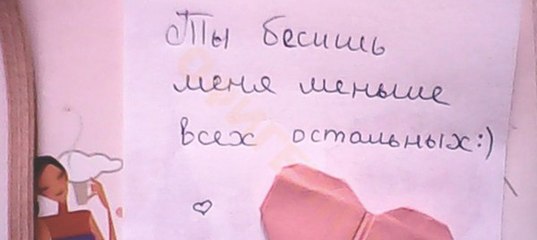 Ты бесишь
меня меньше
всех остальных:)